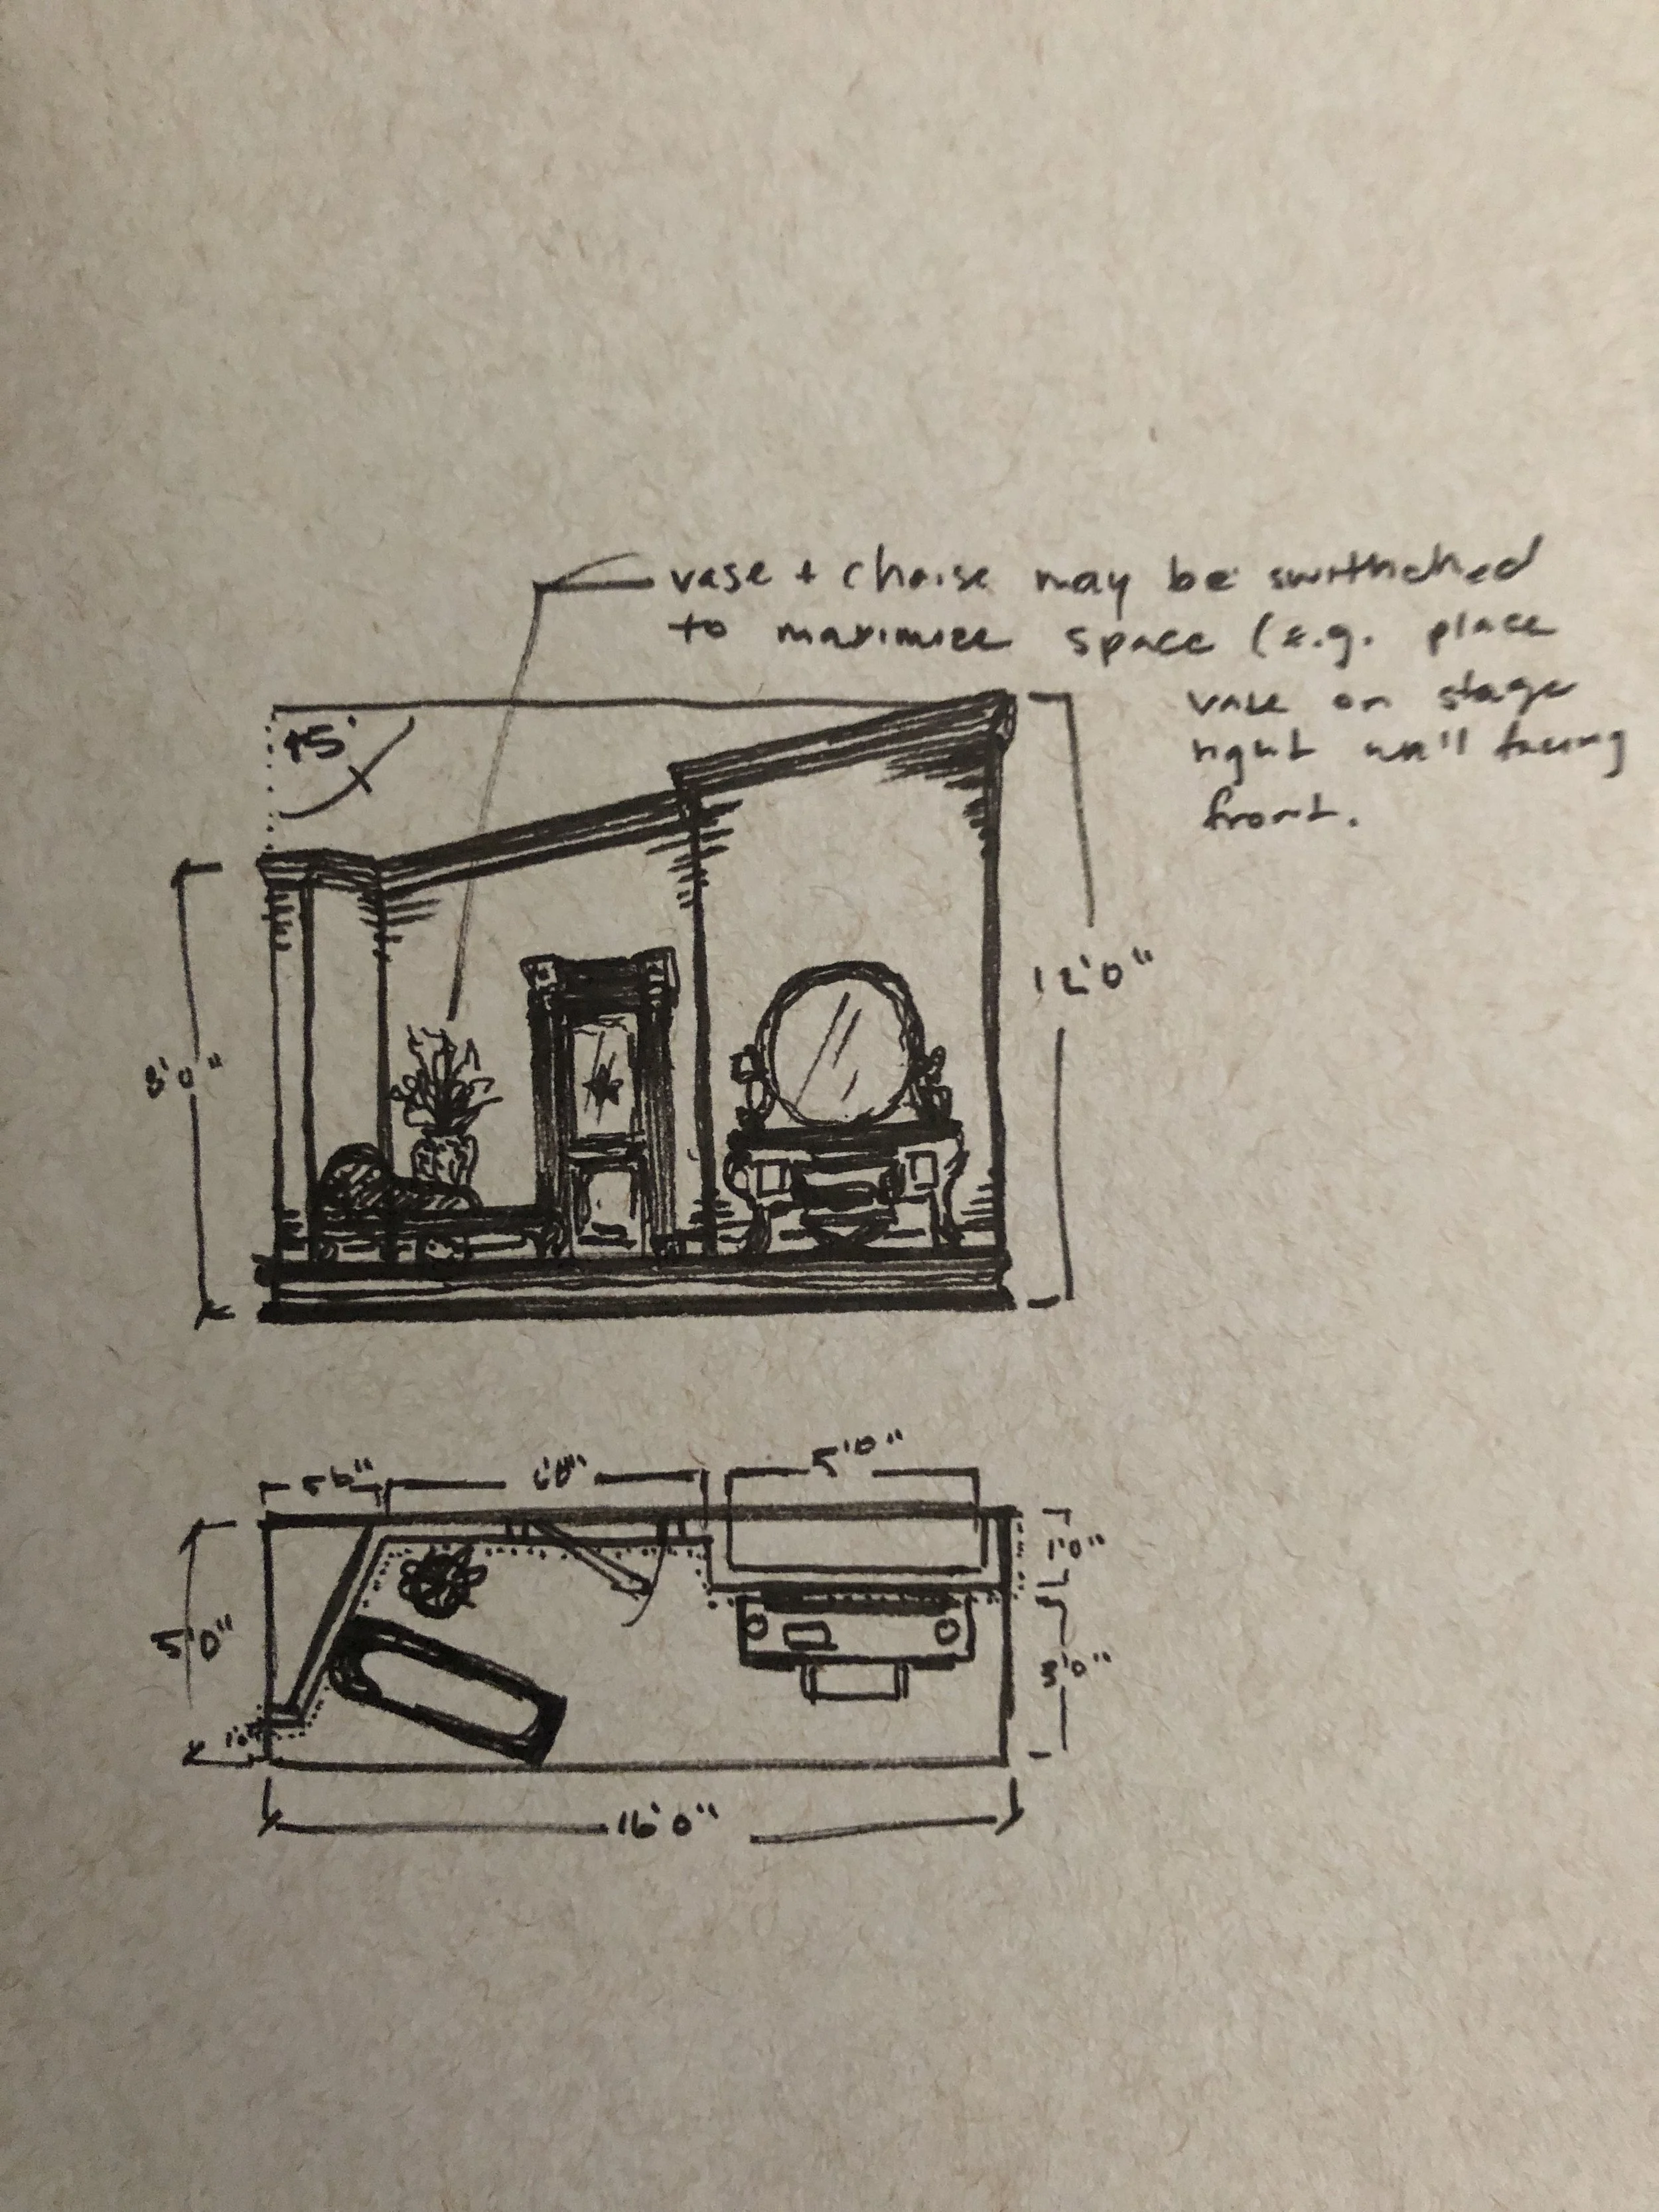 vase + chaise may be switched
to maximize space (e.g. place
vase on stage
right wall facing
front.
45°
8'0"
12'0"
5'0"
5'0"
1'0"
3'0"
16'0"